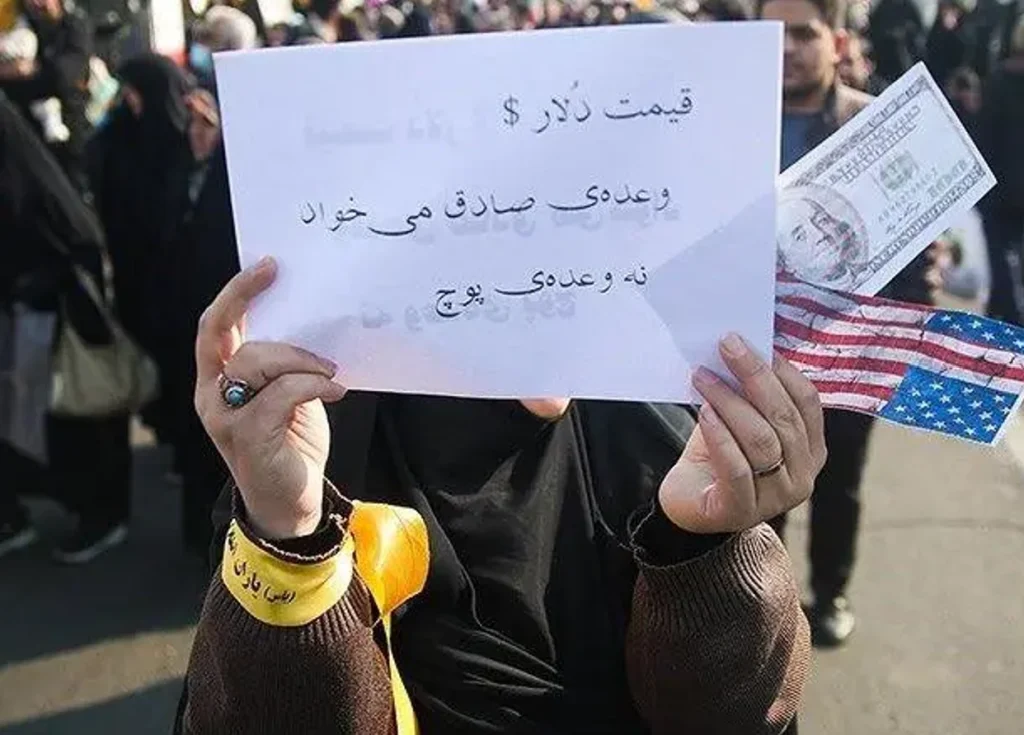 قیمت دُلار $
وعده‌ی صادق می خواد
نه وعده‌ی پوچ
یاران
(یاس)